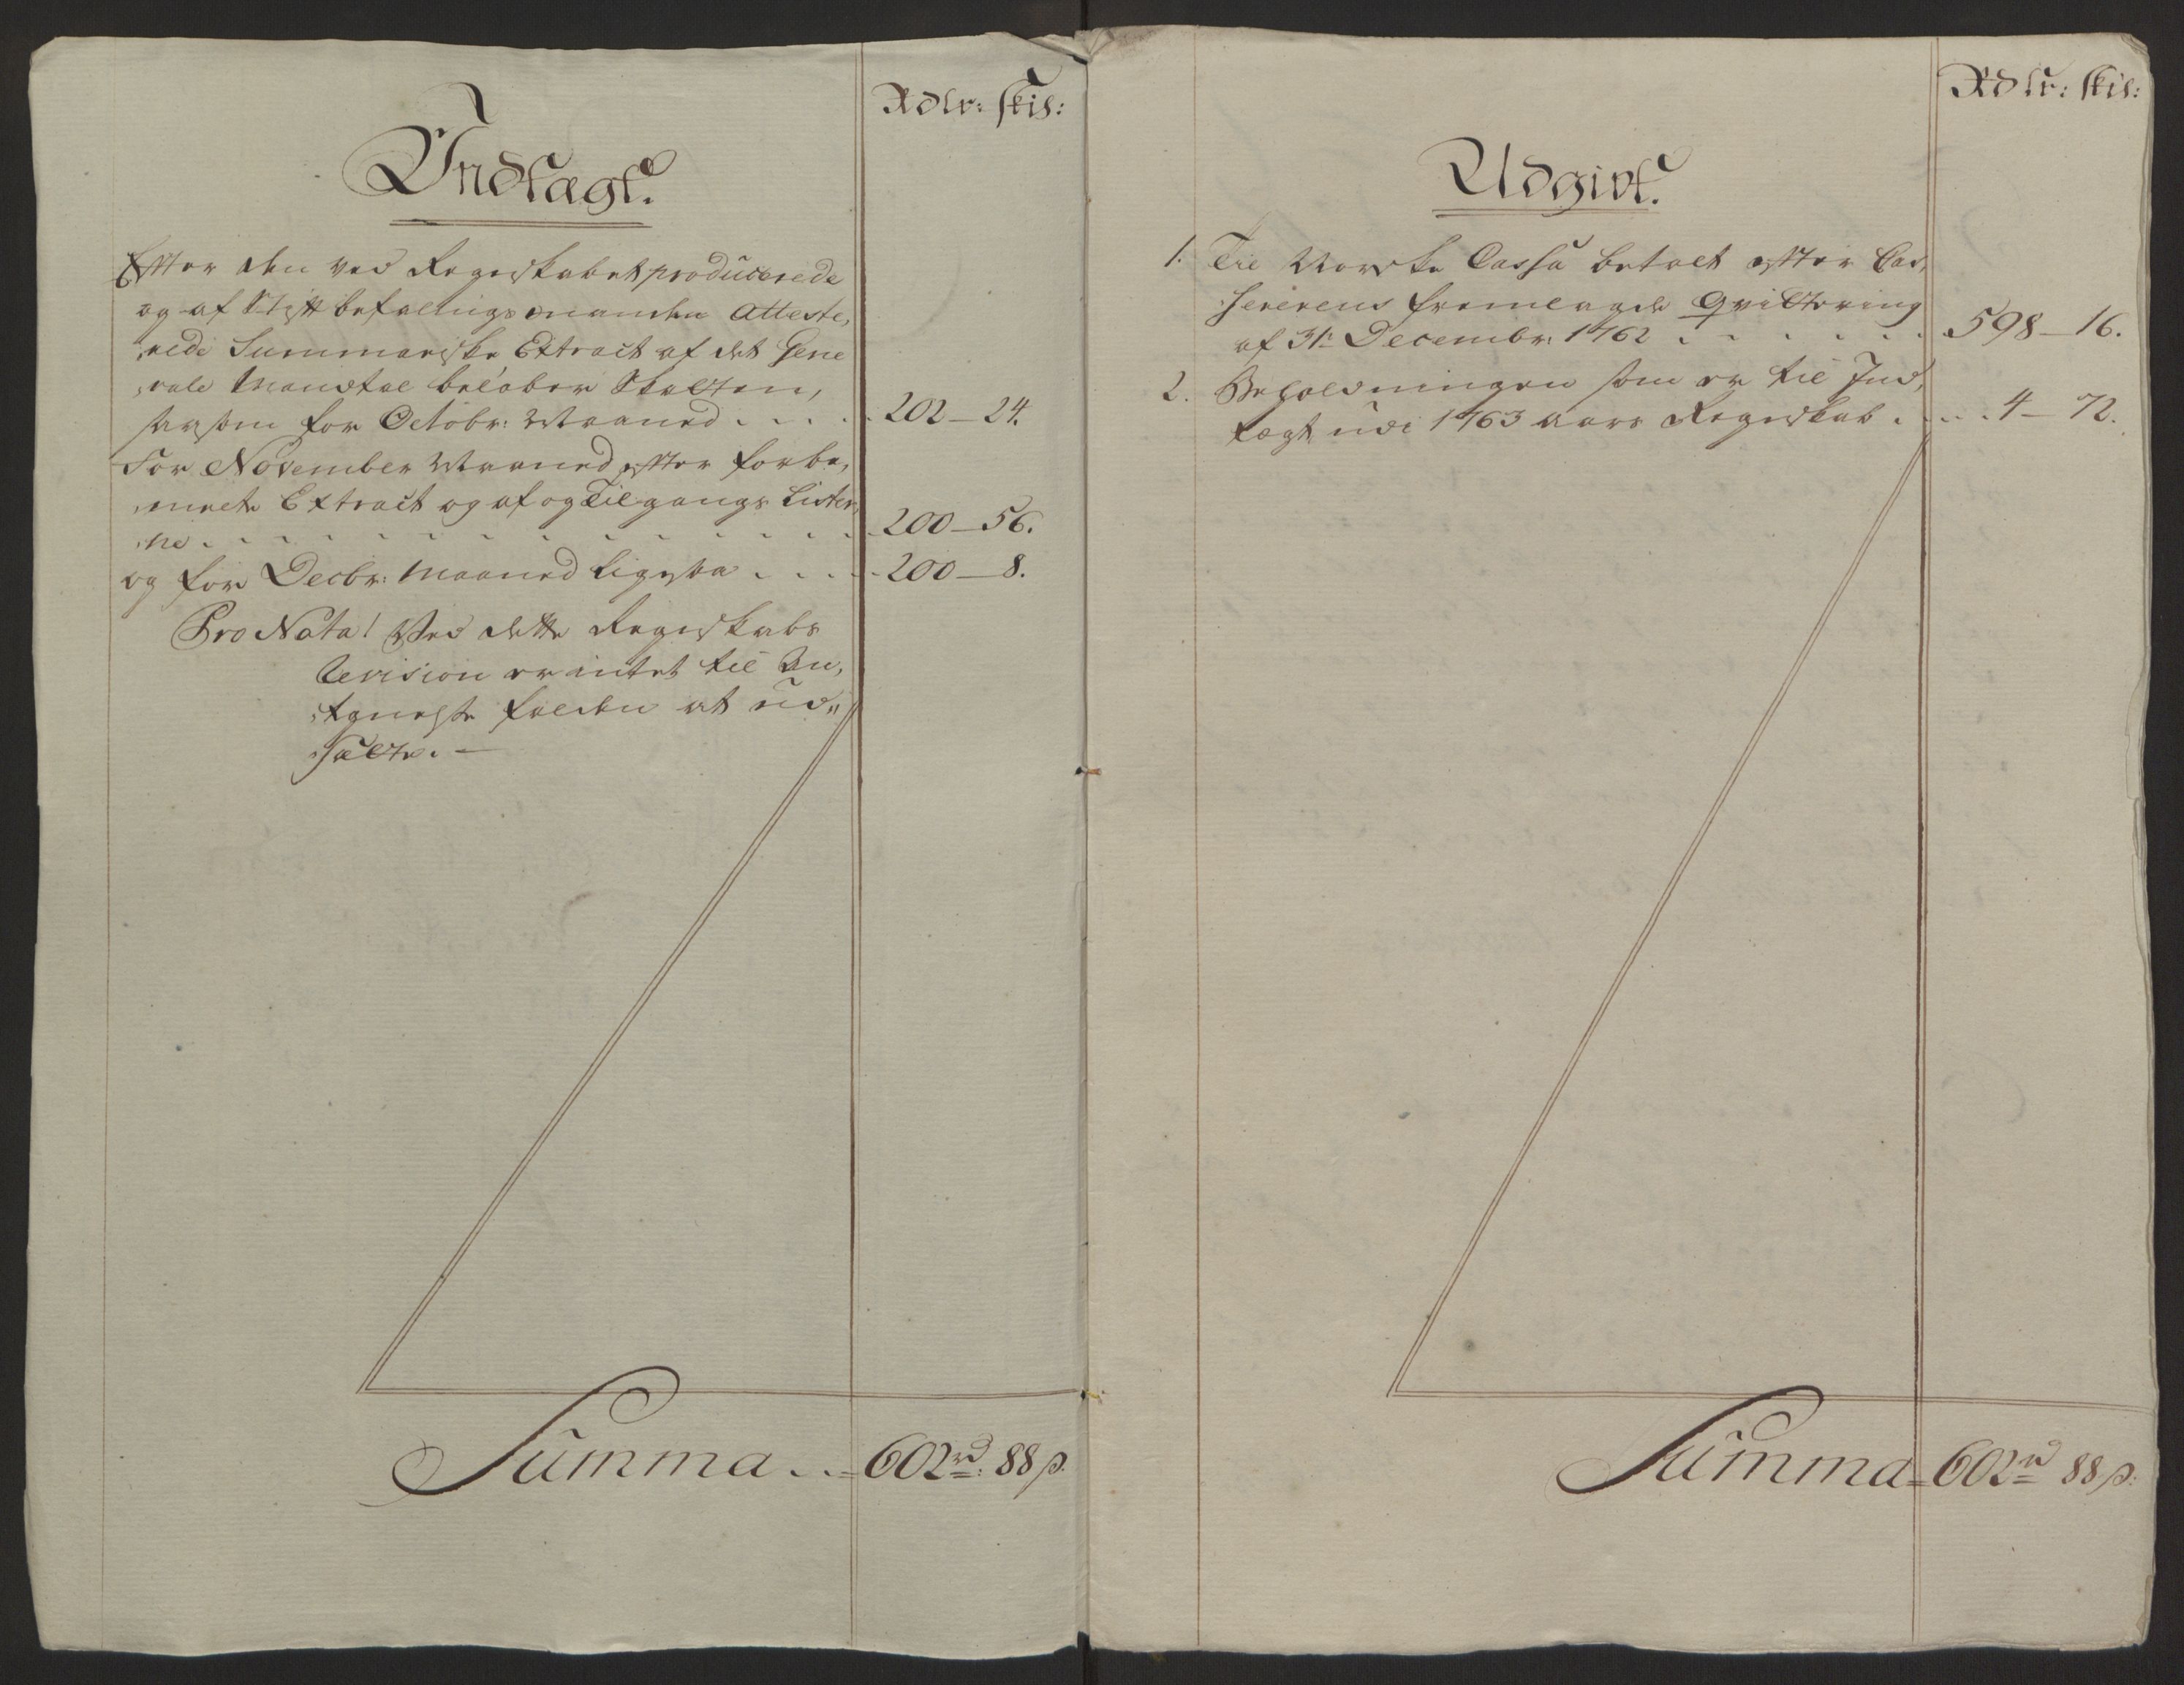 Rdlr: skil:
Indtægt.
Efter den ved Regnskabet producerede
og af Stiftbefalingsmanden Atteste,
,rede Summariske Extract af det Gene
,rale Mandtal beløber Skatten,
saasom for Octobr: Maaned . . . . 202 – 24.
For November Maaned efter forbe,
,meldte Extract og af og Tilgangs Lister,
,ne . . . . . . . . . . . . 200 – 56.
og for Decbr: Maaned ligesaa . . . . 200 – 8.
Pro Nota! Ved dette Regnskabs
Revision er intet til An,
,tegnelse falden at ud„
,sætte. –
Summa . . = 602 rd: 88 s.
Rdlr: skil:
Udgivt.
1. Til Norske Cassa betalt efter Cas,
sererens fremlagde Qvittering
af 31te Decembr: 1762 . . . . . . 598 – 16.
2. Beholdningen som er til Ind,
tægt udi 1763 aars Regnskab . . . . 4 – 72.
Summa = 602 rd 88 s: